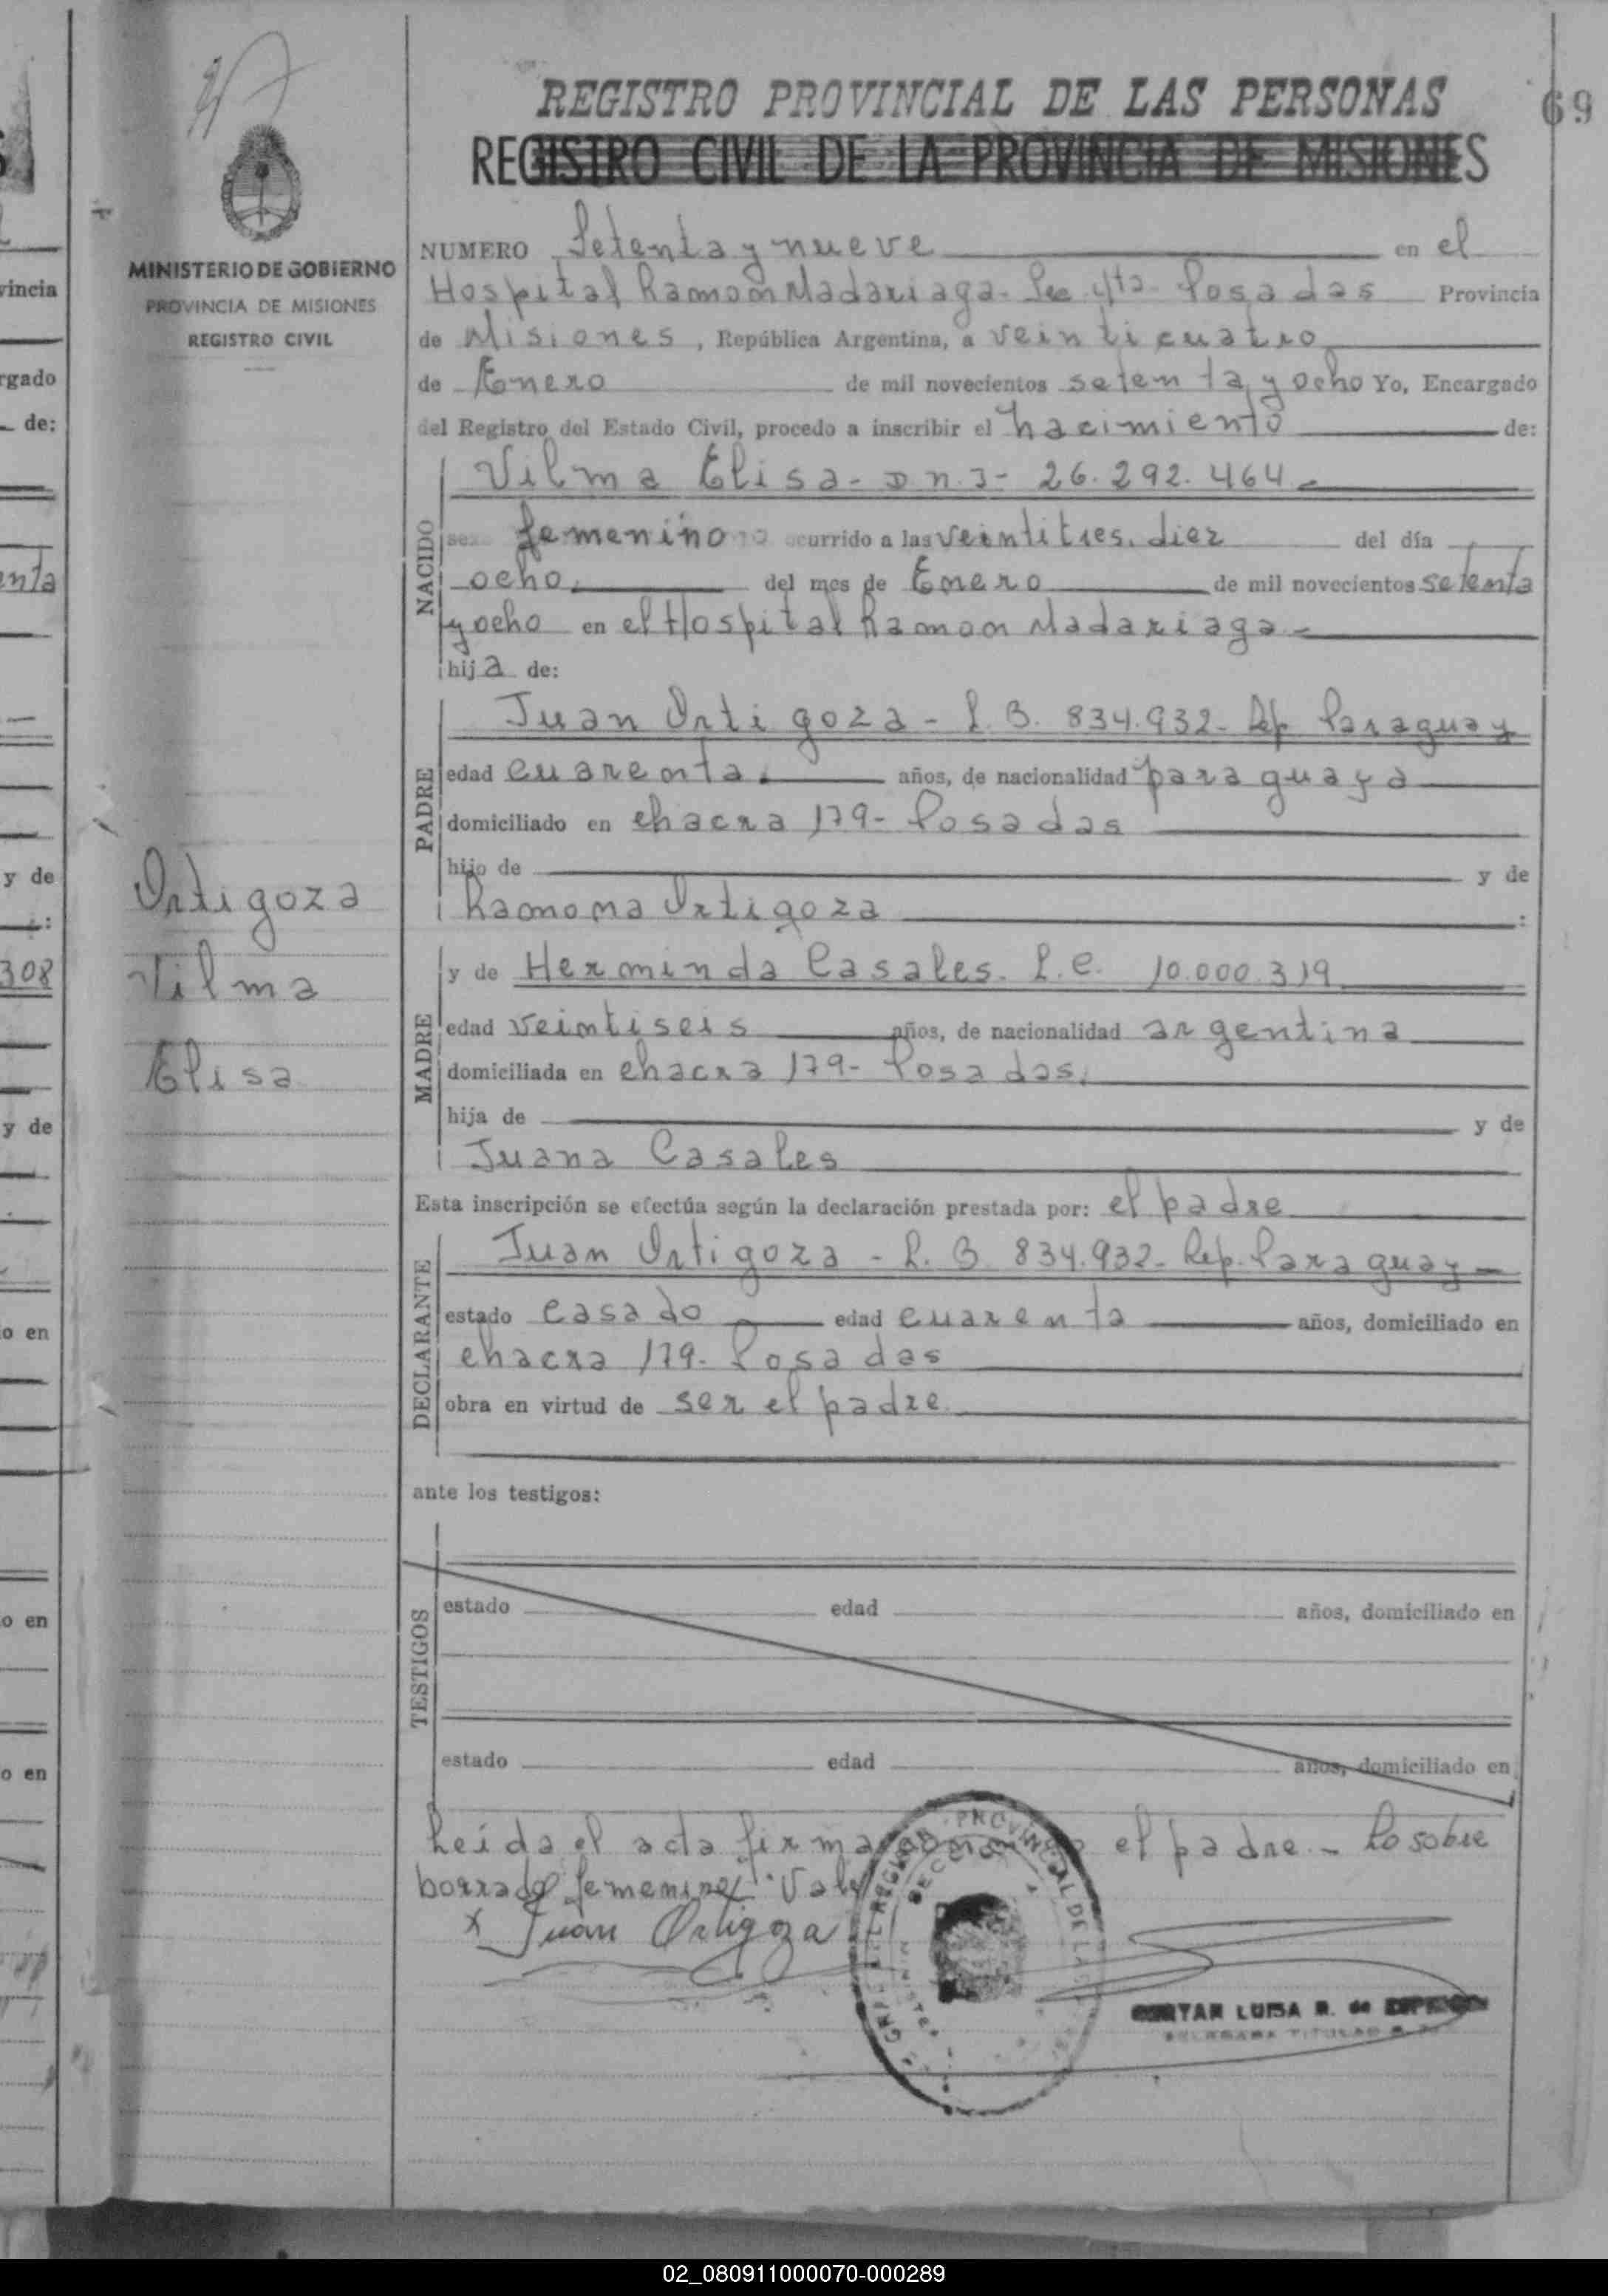 REGISTRO PROVINCIAL DE LAS PERSONAS
69
REGISTRO CIVIL DE LA PROVINCIA DE MISIONES
MINISTERIO DE GOBIERNO
PROVINCIA DE MISIONES
REGISTRO CIVIL
NUMERO Setenta y nueve en el
Hospital Ramon Madariaga - Sec 4ta - Posadas Provincia
de Misiones, República Argentina, a veinticuatro
de Enero de mil novecientos setenta y ocho Yo, Encargado
del Registro del Estado Civil, procedo a inscribir el nacimiento de:
NACIDO
Vilma Elisa - D N I - 26.292.464 -
sexo femenino ocurrido a las veintitres. diez del día
ocho. del mes de Enero de mil novecientos setenta
y ocho en el Hospital Ramon Madariaga -
hija de:
PADRE
Juan Ortigoza - L. B. 834.932 - Rep. Paraguay
edad cuarenta. años, de nacionalidad paraguaya
domiciliado en chacra 179 - Posadas
hijo de y de
Ramona Ortigoza :
Ortigoza
Vilma
Elisa
MADRE
y de Herminda Casales. L.C. 10.000.319
edad veintiseis años, de nacionalidad argentina
domiciliada en chacra 179 - Posadas.
hija de y de
Juana Casales
Esta inscripción se efectúa según la declaración prestada por: el padre
DECLARANTE
Juan Ortigoza - L. B 834.932 - Rep. Paraguay -
estado casado edad cuarenta años, domiciliado en
chacra 179 - Posadas
obra en virtud de ser el padre.
ante los testigos:
TESTIGOS
estado edad años, domiciliado en
estado edad años, domiciliado en
Leida el acta firma el padre - Lo sobre
borrado "femenino" Vale
x Juan Ortigoza
LUISA R. de
vincia
rgado
de:
enta
y de
308
y de
o en
o en
o en
02_080911000070-000289